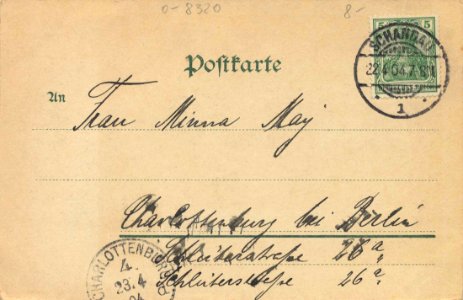 0-8320
8-
5 5
SCHANDAU
22.4.04.7-8N
1
Postkarte
An
Frau Minna May
Charlottenburg bei Berlin
Schlüterstraße 26a
Schlüterstraße 26a
CHARLOTTENBURG
4.
23.4
04